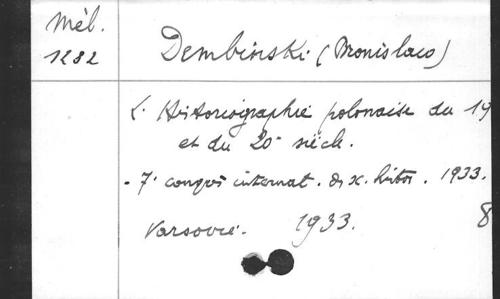 Mél.
1282
Dembinski (Bronislaw)
L'Historiographie polonaise du 19
et du 20e siècle.
- 7e congrès internat. des sc. histor. 1933.
Varsovie. 1933. 8